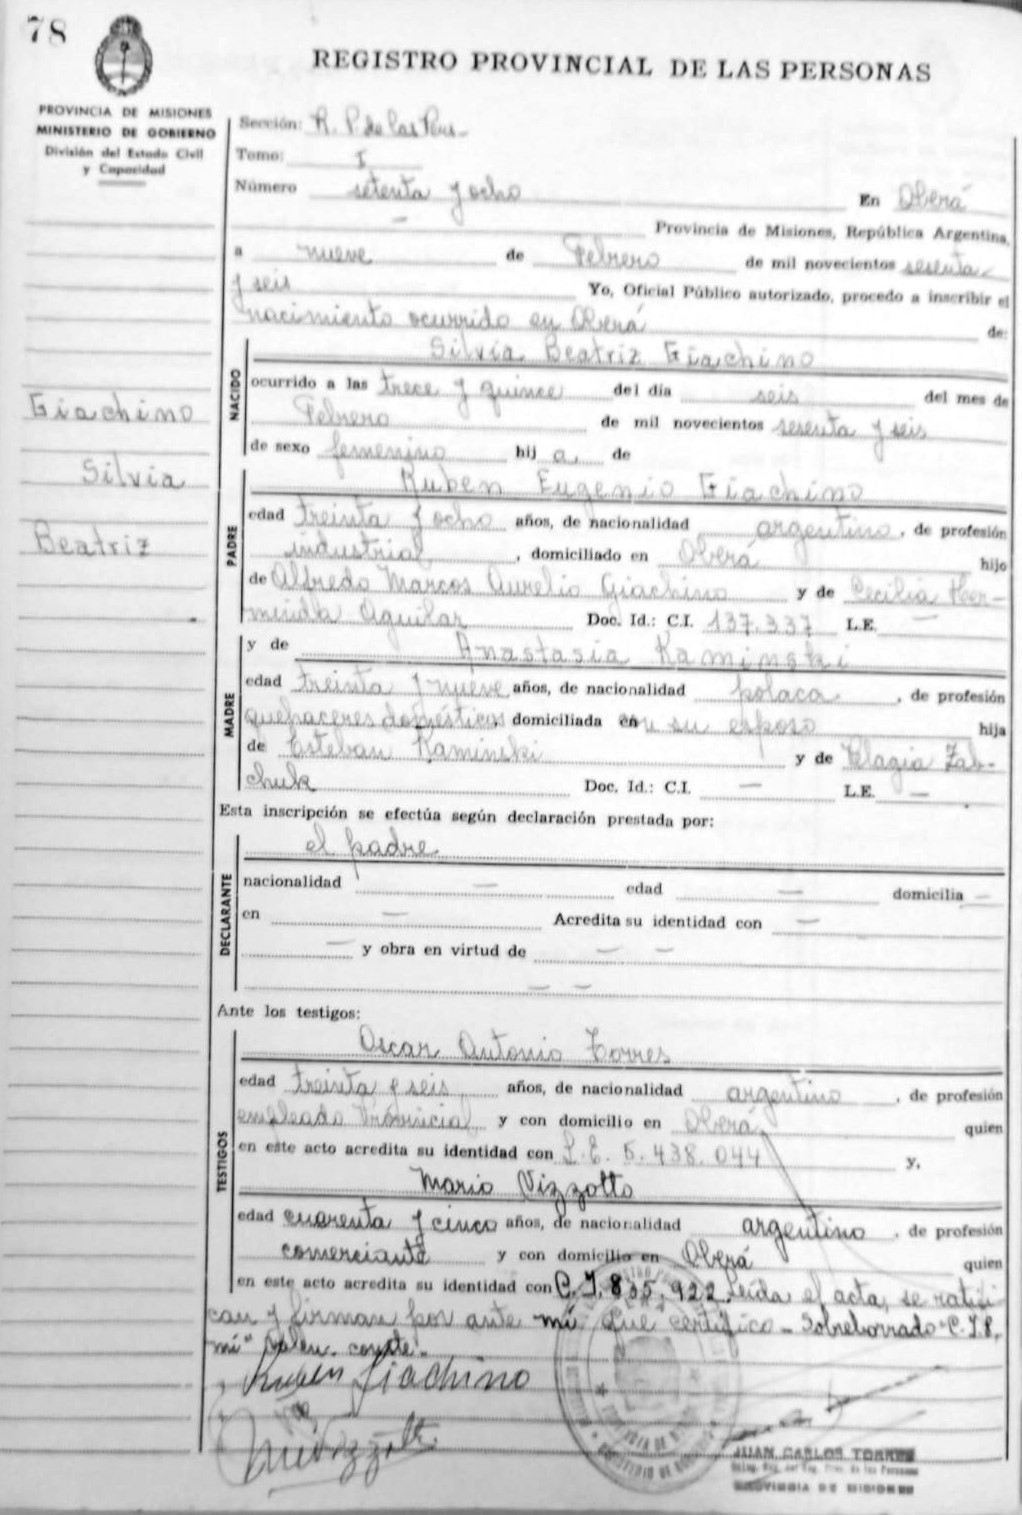 78
REGISTRO PROVINCIAL DE LAS PERSONAS
PROVINCIA DE MISIONES
MINISTERIO DE GOBIERNO
División del Estado Civil
y Capacidad
Giachino
Silvia
Beatriz
Sección: R. P. de las Pers.
Tomo: I
Número setenta y ocho En Oberá
Provincia de Misiones, República Argentina,
a nueve de Febrero de mil novecientos sesenta
y seis Yo, Oficial Público autorizado, procedo a inscribir el
nacimiento ocurrido en Oberá de:
NACIDO
Silvia Beatriz Giachino
ocurrido a las trece y quince del día seis del mes de
Febrero de mil novecientos sesenta y seis
de sexo femenino hij a de
PADRE
Ruben Eugenio Giachino
edad treinta y ocho años, de nacionalidad argentino, de profesión
industrial, domiciliado en Oberá hijo
de Alfredo Marcos Aurelio Giachino y de Cecilia Her-
minda Aguilar Doc. Id.: C.I. 137.337 L.E. —
MADRE
y de Anastasia Kaminski
edad treinta y nueve años, de nacionalidad polaca, de profesión
quehaceres domésticos domiciliada en su esposo hija
de Esteban Kaminski y de Elagia Zab-
chuk Doc. Id.: C.I. — L.E. —
Esta inscripción se efectúa según declaración prestada por:
DECLARANTE
el padre
nacionalidad — edad — domicilia —
en — Acredita su identidad con —
— y obra en virtud de — —
— —
Ante los testigos:
TESTIGOS
Oscar Antonio Torres
edad treinta y seis años, de nacionalidad argentino, de profesión
empleado Provincial y con domicilio en Oberá, quien
en este acto acredita su identidad con L.E. 5.438.044 y,
Mario Vizzotto
edad cuarenta y cinco años, de nacionalidad argentino, de profesión
comerciante y con domicilio en Oberá quien
en este acto acredita su identidad con C.I. 835.922. Leída el acta, se ratifi
can y firman por ante mí que certifico - Sobreborrado "C.I.8,
mí" Valen. conste.-
Ruben Giachino
JUAN CARLOS TORRES
PROVINCIA DE MISIONES